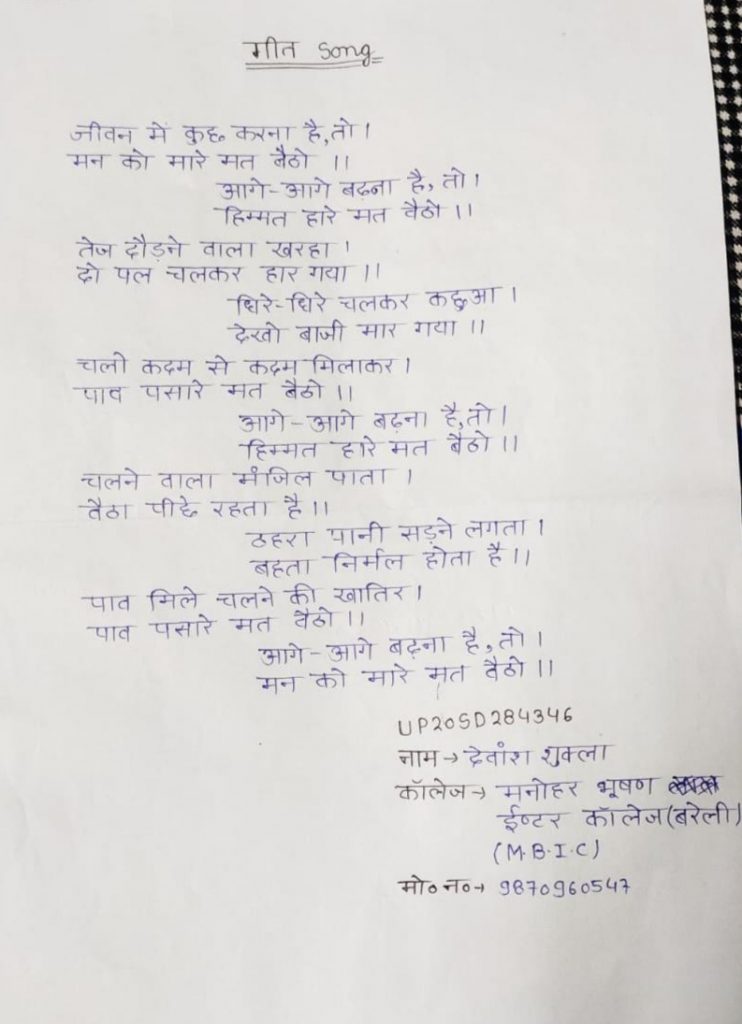 गीत song
जीवन में कुछ करना है,तो।
मन को मारे मत बैठो ।।
आगे-आगे बढ़ना है, तो।
हिम्मत हारे मत बैठो ।।
तेज दौड़ने वाला खरहा ।
दो पल चलकर हार गया ।।
धिरे-धिरे चलकर कछुआ ।
देखो बाजी मार गया ।।
चलो कदम से कदम मिलाकर।
पाव पसारे मत बैठो ।।
आगे-आगे बढ़ना है,तो।
हिम्मत हारे मत बैठो ।।
चलने वाला मंजिल पाता ।
बैठा पीछे रहता है ।।
ठहरा पानी सड़ने लगता ।
बहता निर्मल होता है ।।
पाव मिले चलने की खातिर।
पाव पसारे मत बैठो ।।
आगे-आगे बढ़ना है, तो।
मन को मारे मत बैठो ।।
UP20SD284346
नाम→ देवांश शुक्ला
कॉलेज→ मनोहर भूषण
ईण्टर कॉलेज(बरेली)
(M.B.I.C)
मो०न०→ 9870960547